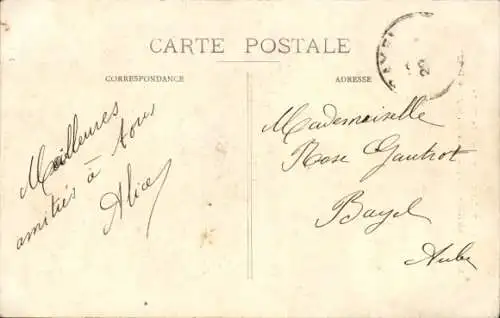 CARTE POSTALE
CORRESPONDANCE
Meilleures
amitiés à tous
Alice
ADRESSE
Mademoiselle
Rose Gautrot
Bayel
Aube